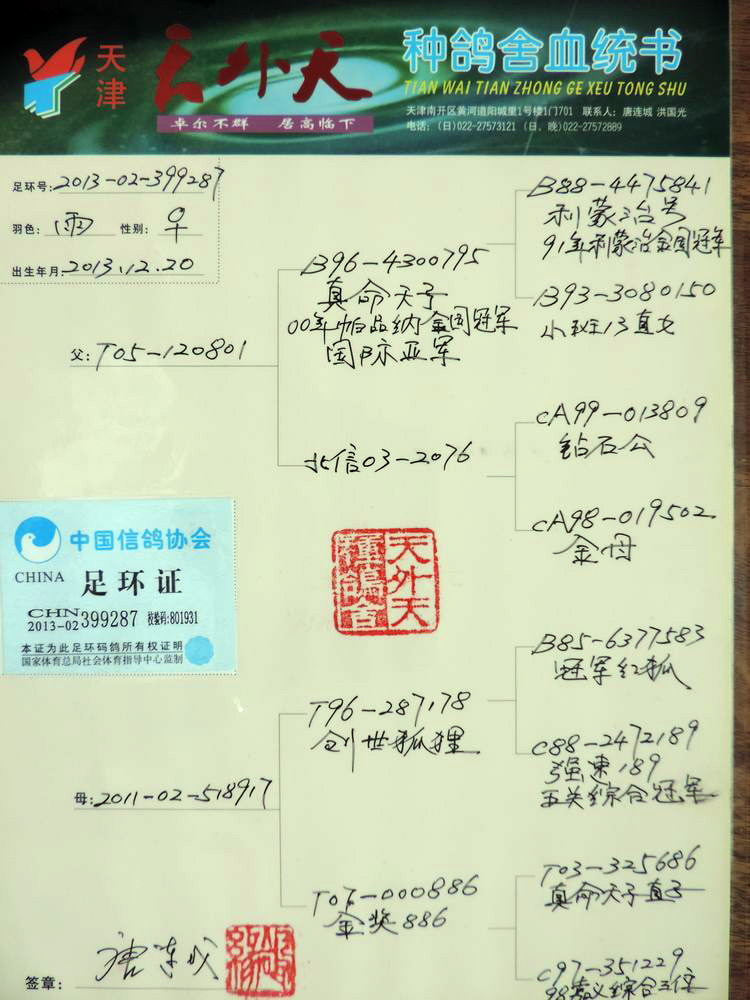 天津
云外天
卓尔不群 居高临下
种鸽舍血统书
TIAN WAI TIAN ZHONG GE XEU TONG SHU
天津南开区黄河道阳城里1号楼1门701 联系人：唐连城 洪国光
电话：(日)022-27573121 (日、晚)022-27572889
足环号：2013-02-399287
羽色：雨 性别：♀
出生年月：2013.12.20
父：T05-120801
B96-4300795
真命天子
00年帕品纳全国冠军
国际亚军
B88-4475841
利蒙治号
91年利蒙治全国冠军
B93-3080150
小班13直女
北信03-2076
CA99-013809
钻石公
CA98-019502
金母
中国信鸽协会
CHINA 足环证
CHN
2013-02 399287 校验码:801931
本证为此足环码鸽所有权证明
国家体育总局社会体育指导中心监制
天外天
種鴿舍
母：2011-02-518917
T96-287178
创世狐狸
B85-6377583
冠军红狐
C88-2472189
强速189
五关综合冠军
T07-000886
金奖886
T03-325686
真命天子直子
C97-351229
综合三位
签章：唐连城